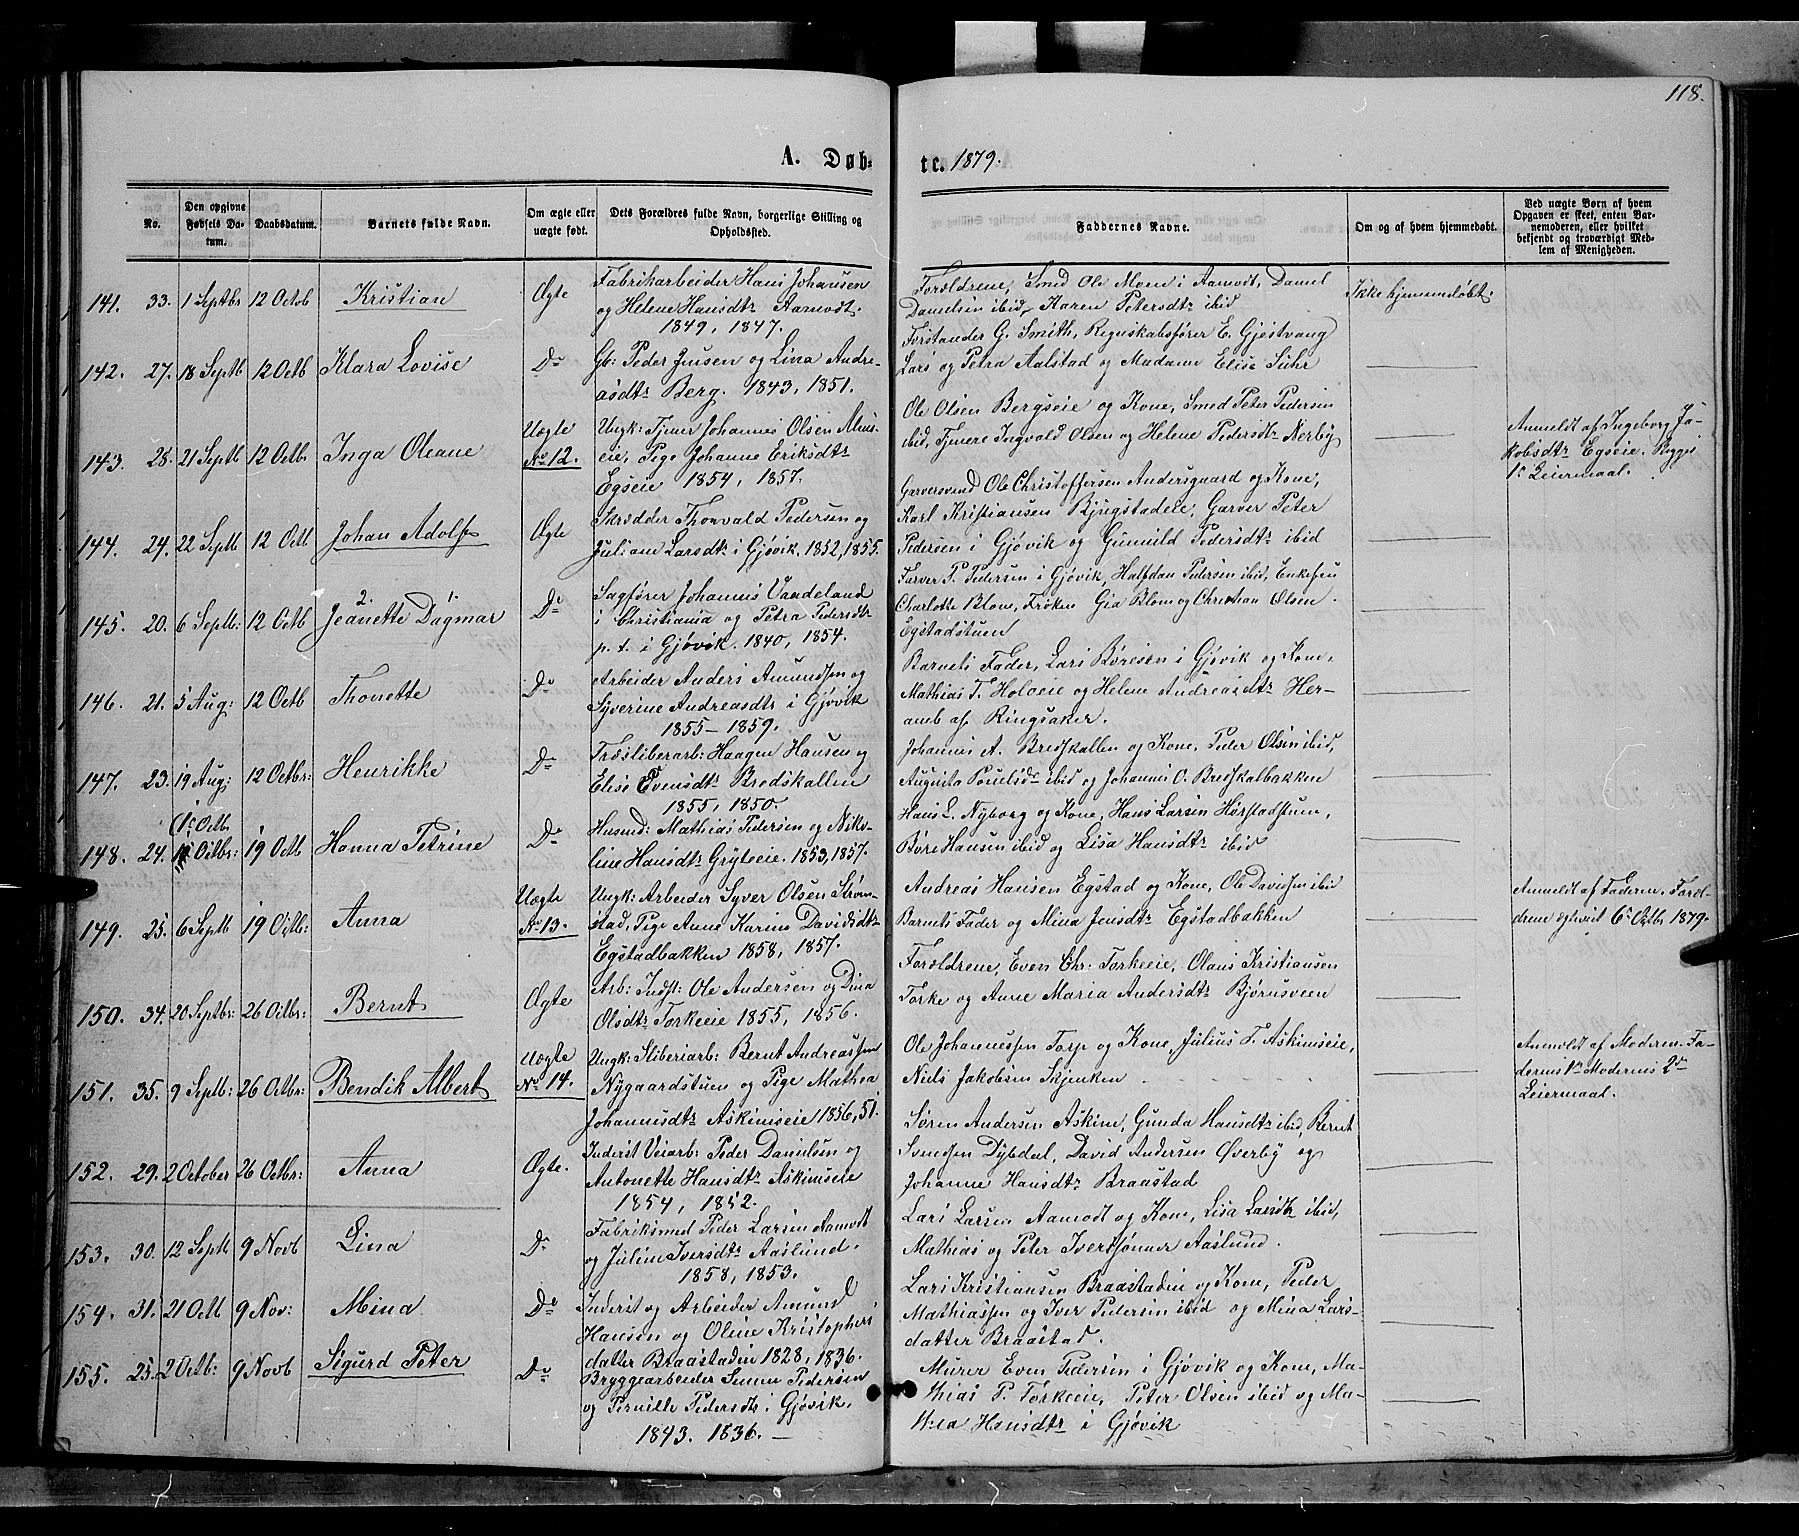 118.
A. Døb-
te. 1879.
No.
Den opgivne Fødsels Da-tum.
Daabsdatum.
Barnets fulde Navn.
Om ægte eller uægte født.
Dets Forældres fulde Navn, borgerlige Stilling og Opholdssted.
Faddernes Navne.
Om og af hvem hjemmedøbt.
Ved uægte Børn af hvem Opgaven er skeet, enten Bar-nemoderen, eller hvilket bekjendt og troværdigt Med-lem af Menigheden.
141. 33. 1 Septbr 12 Octob Kristian Ægte
Fabrikarbeider Hans Johansen
og Helene Hansdtr Aamodt.
1849, 1847.
Forældrene, Smed Ole Moen i Aamodt, Daniel
Danielsen ibid, Karen Petersdtr ibid
Ikke hjemmedøbt.
142. 27. 18 Septb 12 Octb Klara Lovise Do
Gb: Peder Jensen og Lina Andre-
asdtr Berg. 1843, 1851.
Forstander G. Smith, Regnskabsfører E. Gjestvang
Lars og Petra Aalstad og Madame Elise Suhr
143. 28. 21 Septb 12 Octb. Inga Oleane Uægte
No 12.
Ungk: Tjener Johannes Olsen
eie, Pige Johanne Eriksdtr
Egseie 1854, 1857.
Ole Olsen Bergseie og Kone, Smed Peter Pedersen
ibid, Tjenere Ingvald Olsen og Helene Pedersdtr Nerby
Anmeldt af Ingeborg Ja-
kobsdtr Egseie. Begges
1e Leiermaal.
144. 24. 22 Septb 12 Octb Johan Adolf Ægte
Skrædder Thorvald Pedersen og
Juliane Larsdtr i Gjøvik. 1852, 1855.
Garversvend Ole Christoffersen Andersgaard og Kone,
Karl Kristiansen Bjugstadeie, Garver Peter
Pedersen i Gjøvik og Gunnild Pedersdtr ibid
145. 20. 6 Septb: 12 Octb Jeanette Dagmar Do
2. 1.
Sagfører Johannes Vandeland
i Christiania og Petra Pedersdtr
p. t. i Gjøvik. 1840, 1854.
Farver P. Pedersen i Gjøvik, Halfdan Pedersen ibid, Enkefru
Charlotte Blom, Frøken Gia Blom og Christian Olsen
Egstadstuen
146. 21. 5 Aug: 12 Octb Thonette Do
Arbeider Anders Amundsen og
Syverine Andreasdtr i Gjøvik
1855 - 1859.
Barnets Fader, Lars Børesen i Gjøvik og Kone,
Mathias T. Holseie og Helene Andreasdtr Her-
amb af Ringsaker.
147. 23. 19 Aug; 12 Octbr: Henrikke Do
Træsliberarb: Haagen Hansen og
Elise Evensdtr Bredskallen
1855, 1850.
Johannes A. Bredskallen og Kone, Peder Olsen ibid,
Augusta ibid og Johannes O. Bredskalbakken
148. 24. (1e Octb.
Octbr: 19 Octb Hanna Petrine Do
Husmd: Mathias Pedersen og Niko-
line Hansdtr Gryteeie. 1853, 1857.
Hans L. Nyborg og Kone, Hans Larsen Hørstadstuen,
Børe Hansen ibid og Lisa Hansdtr ibid
149. 25. 6 Septb 19 Octbr: Anna Uægte
No 13.
Ungk: Arbeider Syver Olsen Strøm-
stad, Pige Anne Karine Davidsdtr
Egstadbakken 1858, 1857.
Andreas Hansen Egstad og Kone, Ole Davidsen ibid
Barnets Fader og Mina Jensdtr Egstadbakken
Anmeldt af Faderen. Foræl-
drene ægteviet 6e Octbr 1879.
150. 34. 20 Septbr: 26 Octbr: Bernt Ægte
Arb: Indst: Ole Andersen og Dina
Olsdtr Torkeeie 1855, 1856.
Forældrene, Even Chr: Torkeeie, Olaus Kristiansen
Torke og Anne Maria Andersdtr Bjørnsveen
151. 35. 9 Septb: 26 Octbr: Bendik Albert Uægte
No 14.
Ungk: Sliberiarb: Bernt Andreassen
Nygaardstuen og Pige Mathea
Johannesdtr Askimseie 1856, 51.
Ole Johannessen Torp og Kone, Julius T. Askimseie,
Niels Jakobsen Skjenken
Anmeldt af Moderen. Fa-
derens 1e Moderens 2de
Leiermaal.
152. 29. 2 October 26 Octbr: Anna Ægte.
Inderst Veiarb: Peder Danielsen og
Antonette Hansdtr Askimseie
1854, 1852.
Søren Andersen Askim, Gunda Hansdtr ibid, Bernt
Svendsen Dybdal, David Andersen Øverby og
Johanne Hansdtr Braastad
153. 30. 12 Septb 9 Novb Lina Do
Fabriksmed Peder Larsen Aamodt
og Juline Iversdtr Aaslund.
1858, 1853.
Lars Larsen Aamodt og Kone, Lisa Larsdtr ibid,
Mathias og Peter Iverssønner Aaslund.
154. 31. 21 Octb 9 Nov: Mina Do
Inderst og Arbeider Amund
Hansen og Oline Kristophers
datter Braastadeie 1828, 1836.
Lars Kristiansen Braastadeie og Kone, Peder
Mathiassen og Iver Pedersen ibid og Mina Lars-
datter Braastad.
155. 25. 2 Octb: 9 Novb Sigurd Peter Do
Bryggearbeider Pedersen
og Pernille Pedersdtr i Gjøvik,
1843. 1836. -
Murer Even Pedersen i Gjøvik og Kone, Ma-
thias P. Torkeeie, Peter Olsen ibid og Ma-
thea Hansdtr i Gjøvik